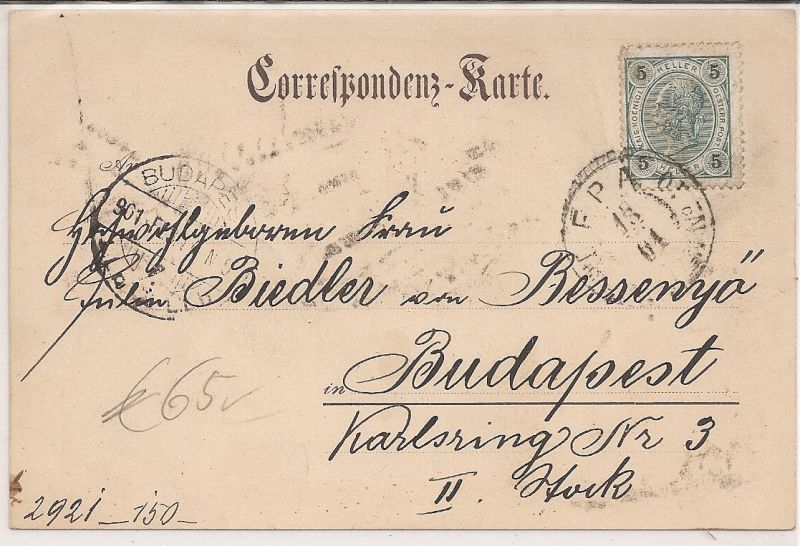 Correspondenz-Karte.
5 HELLER 5
KAIS. KOENIGL. OESTERR. POST
5 5
An
BUDAPEST
901
18
01
Hochwohlgeboren Frau
Biedler von Bessenyö
in Budapest
Karlsring Nr 3
II. Stock
€ 65
2921_150_